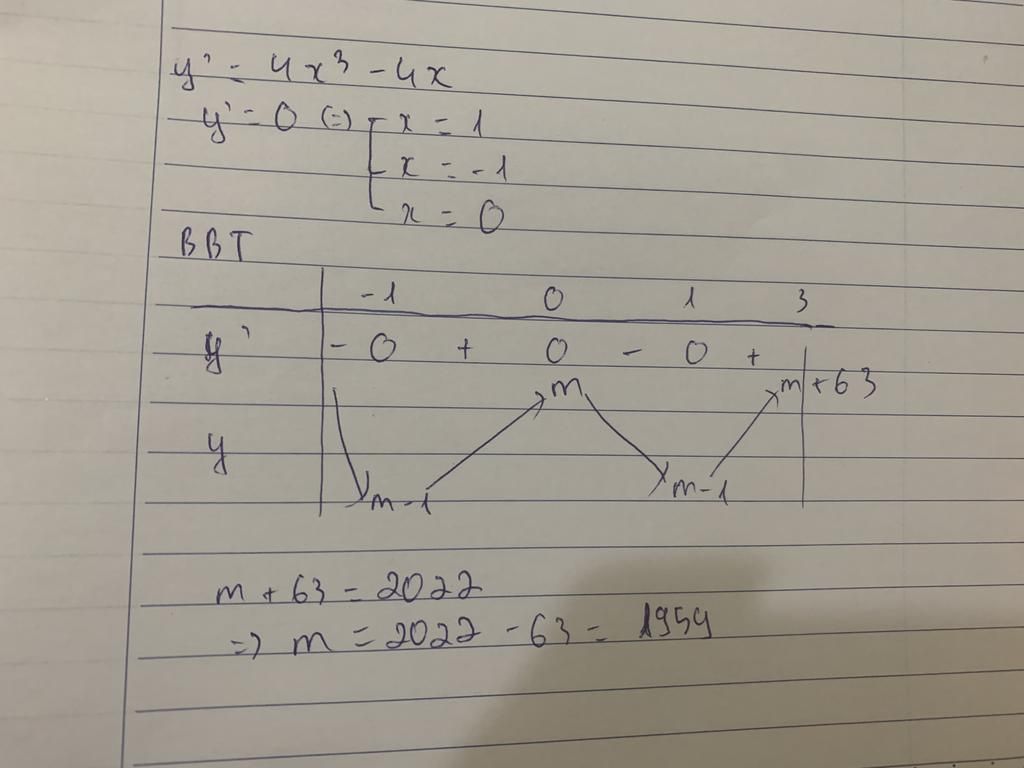 y' = 4x³ - 4x
y' = 0 (=) [ x = 1
x = -1
x = 0
BBT
-1 0 1 3
y' - 0 + 0 - 0 +
m m + 63
y
m-1 m-1
m + 63 = 2022
=> m = 2022 - 63 = 1959